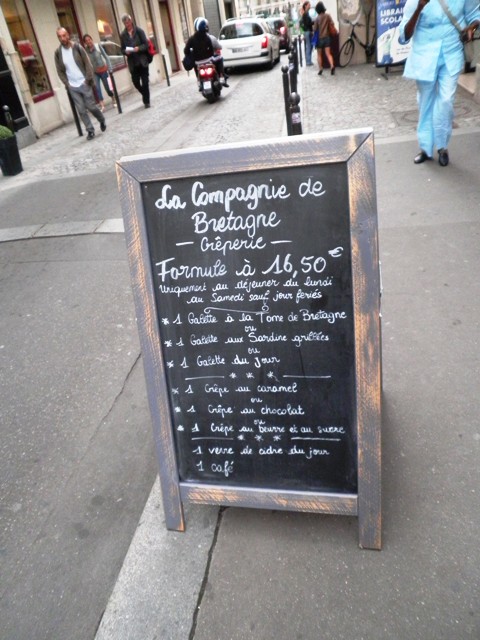 La Compagnie de
Bretagne
— Crêperie —
Formule à 16,50€
Uniquement au déjeuner du lundi
au Samedi sauf jour feriés
* 1 Galette à la Tome de Bretagne
ou
* 1 Galette aux Sardine grillées
ou
* 1 Galette du jour
* * *
* 1 Crêpe au caramel
ou
* 1 Crêpe au chocolat
ou
* 1 Crêpe au beurre et au sucre
* * *
1 verre de cidre du jour
1 café
LIBRAIRIE